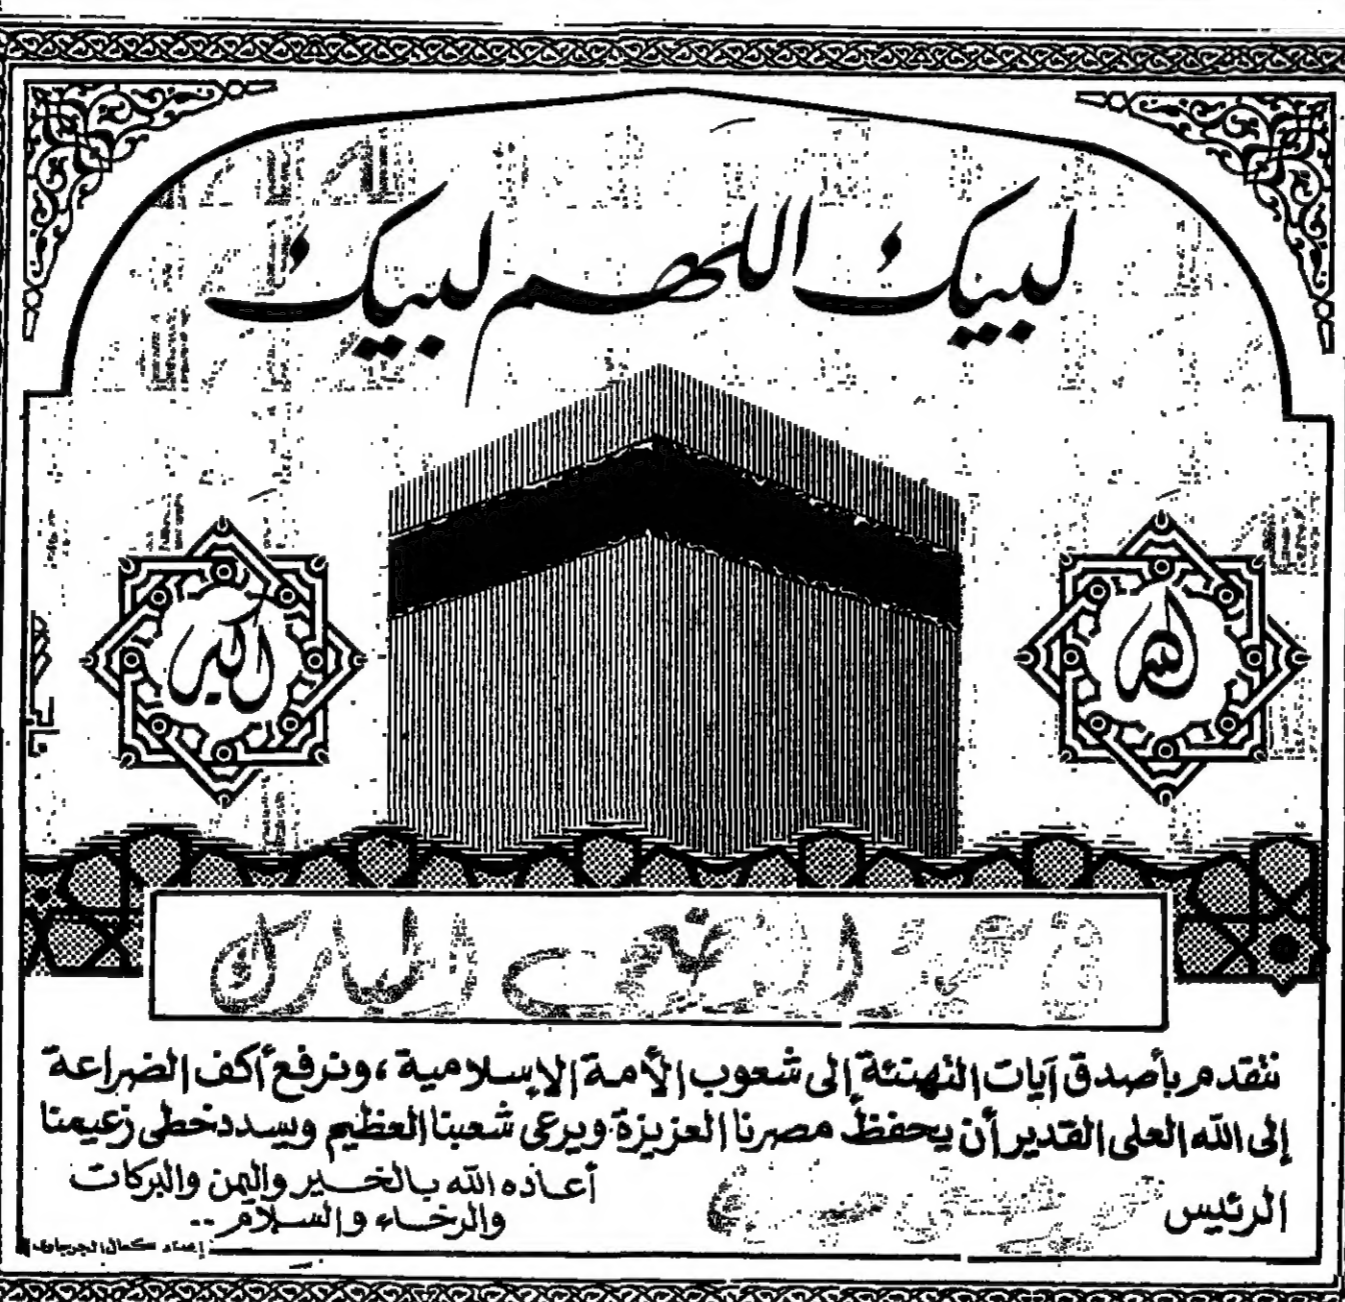 لبيك اللهم لبيك
الله
اكبر
المبارك
نتقدم بأصدق آيات التهنئة إلى شعوب الأمة الإسلامية ، ونرفع أكف الضراعة
إلى الله العلى القدير أن يحفظ مصرنا العزيزة ويرعى شعبنا العظيم ويسدد خطى زعيمنا
الرئيس
أعاده الله بالخير واليمن والبركات
والرخاء والسلام ..
إعداد كمال